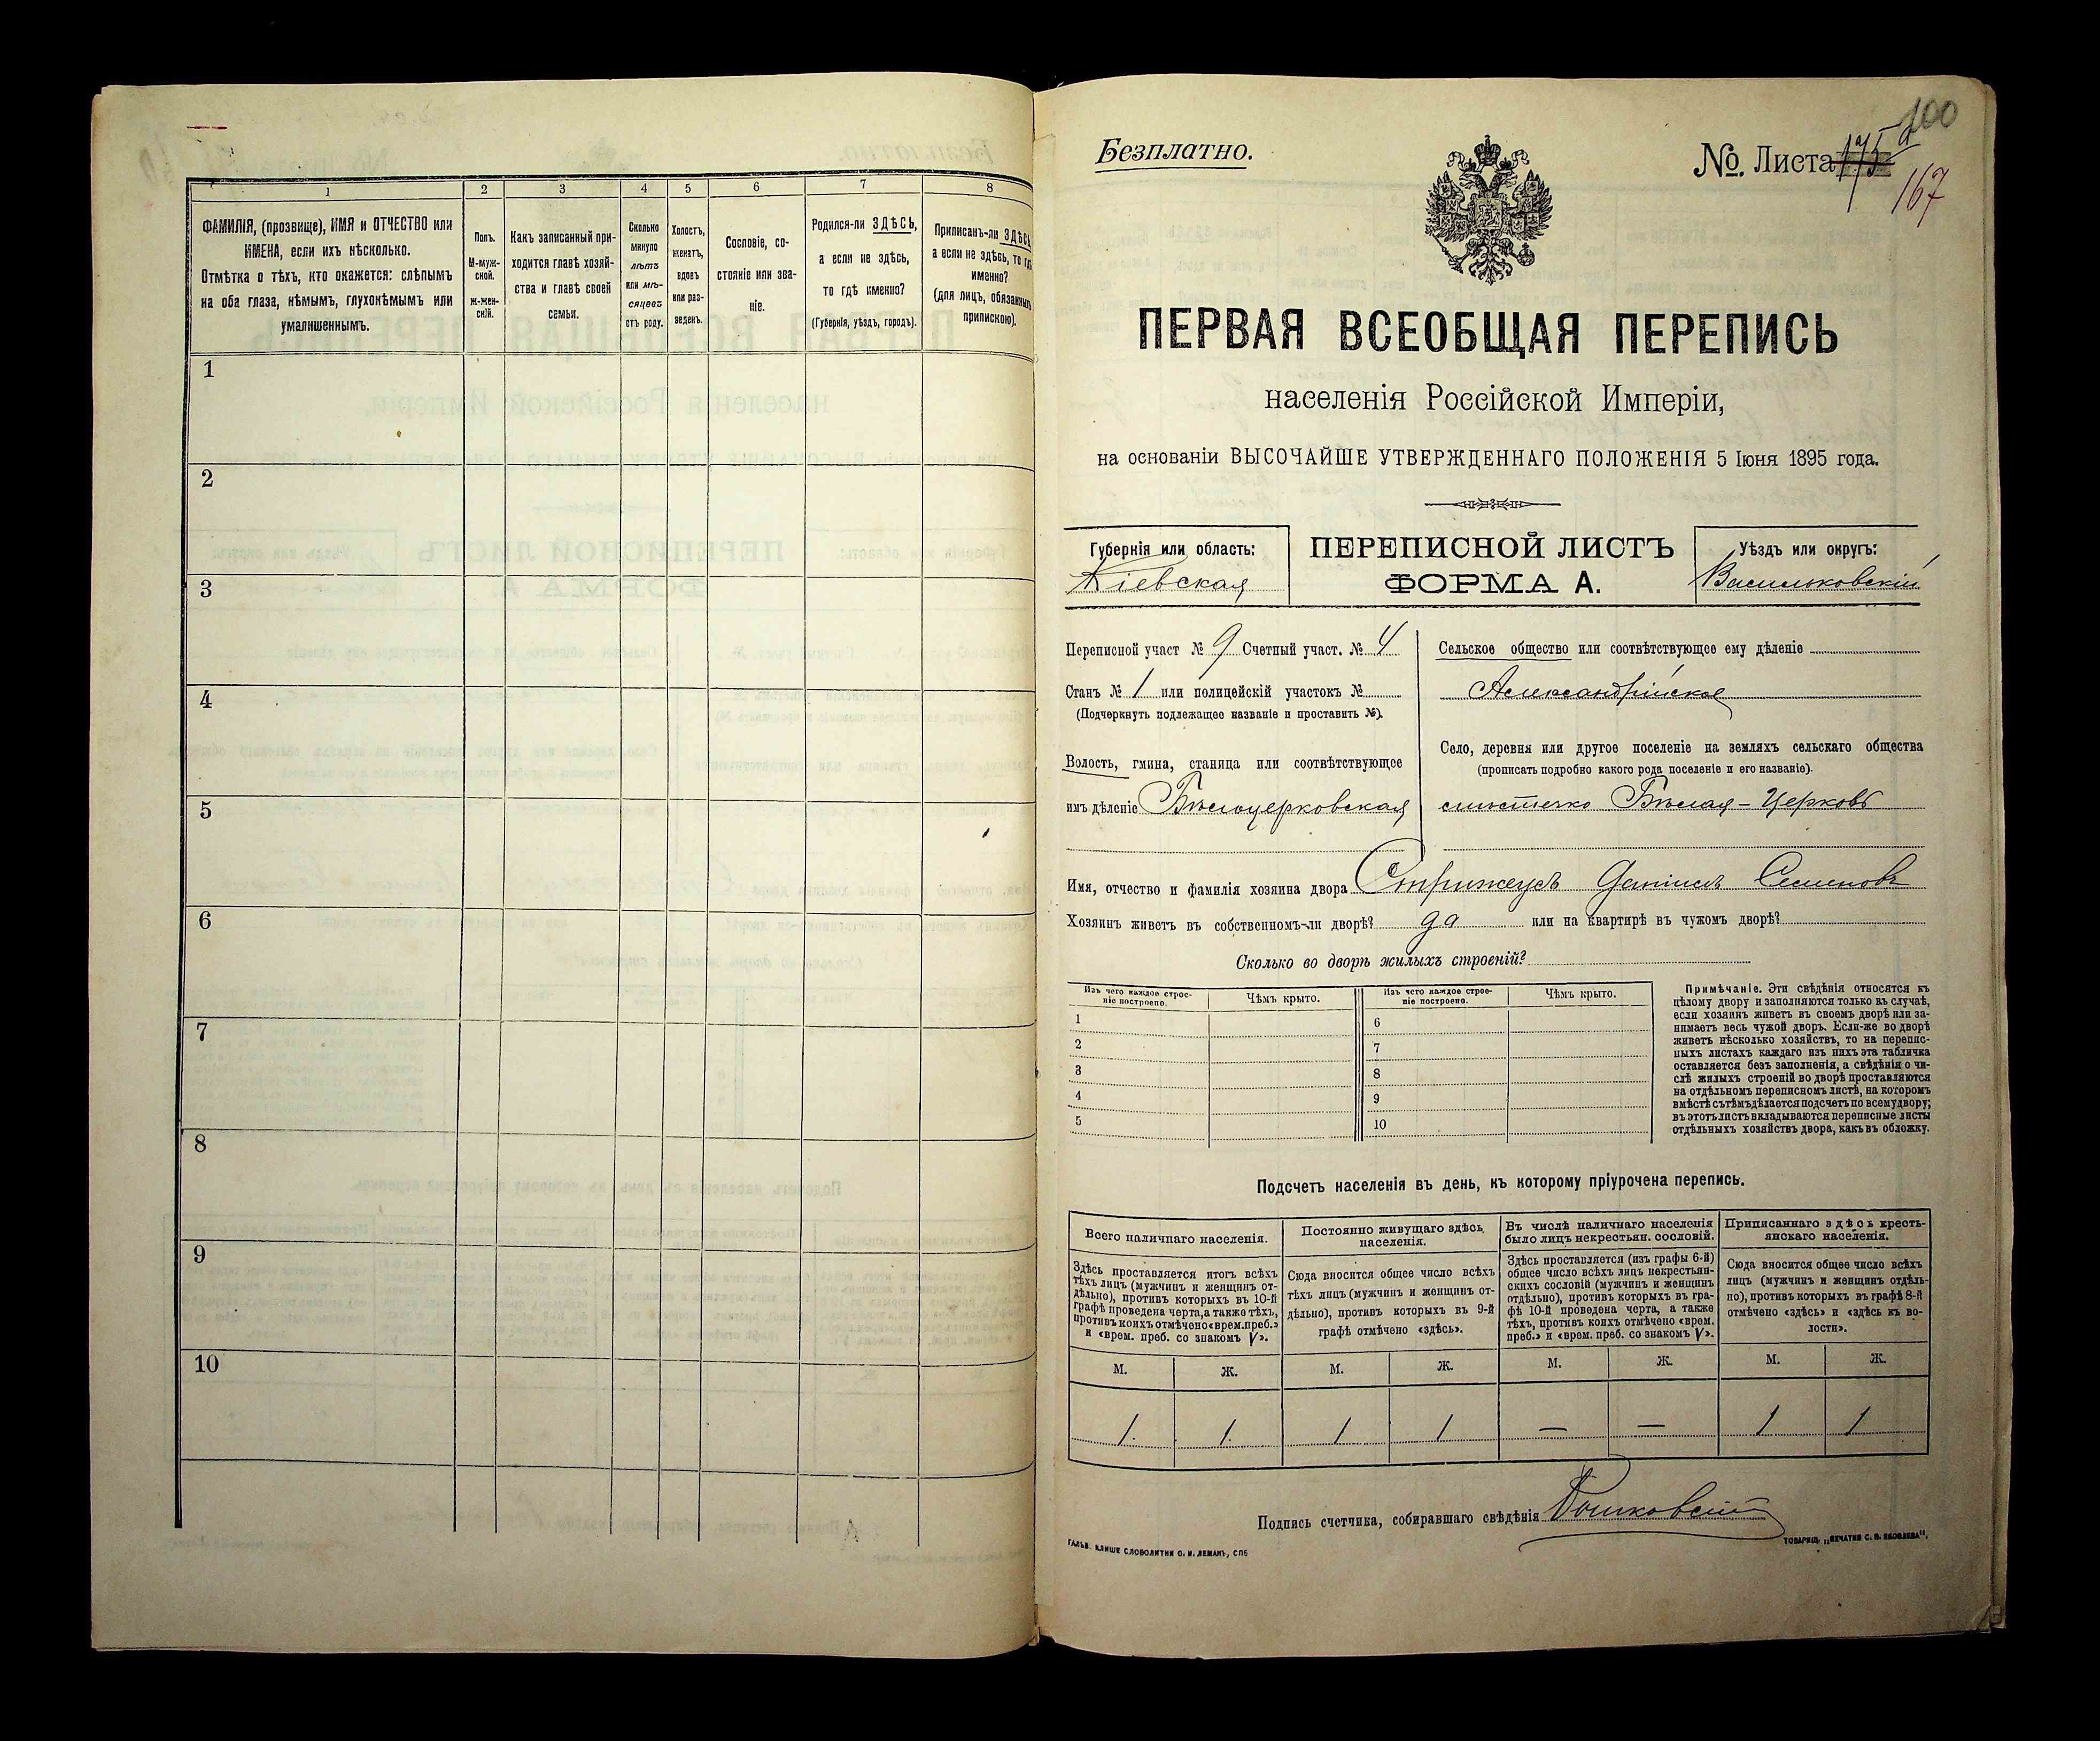 1
2
3
4
5
6
7
8
ФАМИЛІЯ, (прозвище), ИМЯ и ОТЧЕСТВО или
ИМЕНА, если ихъ нѣсколько.
Отмѣтка о тѣхъ, кто окажется: слѣпымъ
на оба глаза, нѣмымъ, глухонѣмымъ или
умалишеннымъ.
Полъ.
М-муж-
ской.
Ж-жен-
скій.
Какъ записанный при-
ходится главѣ хозяй-
ства и главѣ своей
семьи.
Сколько
минуло
лѣтъ
или мѣ-
сяцевъ
отъ роду.
Холостъ,
женатъ,
вдовъ
или раз-
веденъ.
Сословіе, со-
стояніе или зва-
ніе.
Родился-ли ЗДѢСЬ,
а если не здѣсь,
то гдѣ именно?
(Губернія, уѣздъ, городъ).
Приписанъ-ли ЗДѢСЬ
а если не здѣсь, то гдѣ
именно?
(для лицъ, обязанныхъ
припискою).
1
2
3
4
5
6
7
8
9
10
100
Безплатно.
№. Листа 175 а
167
ПЕРВАЯ ВСЕОБЩАЯ ПЕРЕПИСЬ
населенія Россійской Имперіи,
на основаніи ВЫСОЧАЙШЕ УТВЕРЖДЕННАГО ПОЛОЖЕНІЯ 5 Іюня 1895 года.
Губернія или область:
Кіевская
ПЕРЕПИСНОЙ ЛИСТЪ
ФОРМА А.
Уѣздъ или округъ:
Васильковскій
Переписной участ № 9 Счетный участ. № 4
Станъ № 1 или полицейскій участокъ №
(Подчеркнуть подлежащее названіе и проставить №).
Волость, гмина, станица или соотвѣтствующее
имъ дѣленіе Бѣлоцерковская
Сельское общество или соотвѣтствующее ему дѣленіе
Александрійское
Село, деревня или другое поселеніе на земляхъ сельскаго общества
(прописать подробно какого рода поселеніе и его названіе).
мѣстечко Бѣлая-Церковь
Имя, отчество и фамилія хозяина двора Стрижеусъ Даніилъ Семеновъ
Хозяинъ живетъ въ собственномъ-ли дворѣ? да или на квартирѣ въ чужомъ дворѣ?
Сколько во дворѣ жилыхъ строеній?
Изъ чего каждое строе-
ніе построено.
Чѣмъ крыто.
Изъ чего каждое строе-
ніе построено.
Чѣмъ крыто.
1
2
3
4
5
6
7
8
9
10
Примѣчаніе. Эти свѣдѣнія относятся къ
цѣлому двору и заполняются только въ случаѣ,
если хозяинъ живетъ въ своемъ дворѣ или за-
нимаетъ весь чужой дворъ. Если-же во дворѣ
живетъ нѣсколько хозяйствъ, то на перепис-
ныхъ листахъ каждаго изъ нихъ эта табличка
оставляется безъ заполненія, а свѣдѣнія о чи-
слѣ жилыхъ строеній во дворѣ проставляются
на отдѣльномъ переписномъ листѣ, на которомъ
вмѣстѣ съ тѣмъ дѣлается подсчетъ по всему двору;
въ этотъ листъ вкладываются переписные листы
отдѣльныхъ хозяйствъ двора, какъ въ обложку.
Подсчетъ населенія въ день, къ которому пріурочена перепись.
Всего наличнаго населенія.
Здѣсь проставляется итогъ всѣхъ
тѣхъ лицъ (мужчинъ и женщинъ от-
дѣльно), противъ которыхъ въ 10-й
графѣ проведена черта, а также тѣхъ,
противъ коихъ отмѣчено «врем. преб.»
и «врем. преб. со знакомъ V».
Постоянно живущаго здѣсь
населенія.
Сюда вносится общее число всѣхъ
тѣхъ лицъ (мужчинъ и женщинъ от-
дѣльно), противъ которыхъ въ 9-й
графѣ отмѣчено «здѣсь».
Въ числѣ наличнаго населенія
было лицъ некрестьян. сословій.
Здѣсь проставляется (изъ графы 6-й)
общее число всѣхъ лицъ некрестьян-
скихъ сословій (мужчинъ и женщинъ
отдѣльно), противъ которыхъ въ гра-
фѣ 10-й проведена черта, а также
тѣхъ, противъ коихъ отмѣчено «врем.
преб.» и «врем. преб. со знакомъ V».
Приписаннаго здѣсь кресть-
янскаго населенія.
Сюда вносится общее число всѣхъ
лицъ (мужчинъ и женщинъ отдѣль-
но), противъ которыхъ въ графѣ 8-й
отмѣчено «здѣсь» и «здѣсь къ во-
лости».
М. Ж. М. Ж. М. Ж. М. Ж.
1 1 1 1 — — 1 1
Подпись счетчика, собиравшаго свѣдѣнія
ГАЛЬВ. КЛИШЕ СЛОВОЛИТНИ О. И. ЛЕМАНЪ, СПБ
ТОВАРИЩ. „ПЕЧАТНЯ С. П. ЯКОВЛЕВА“.